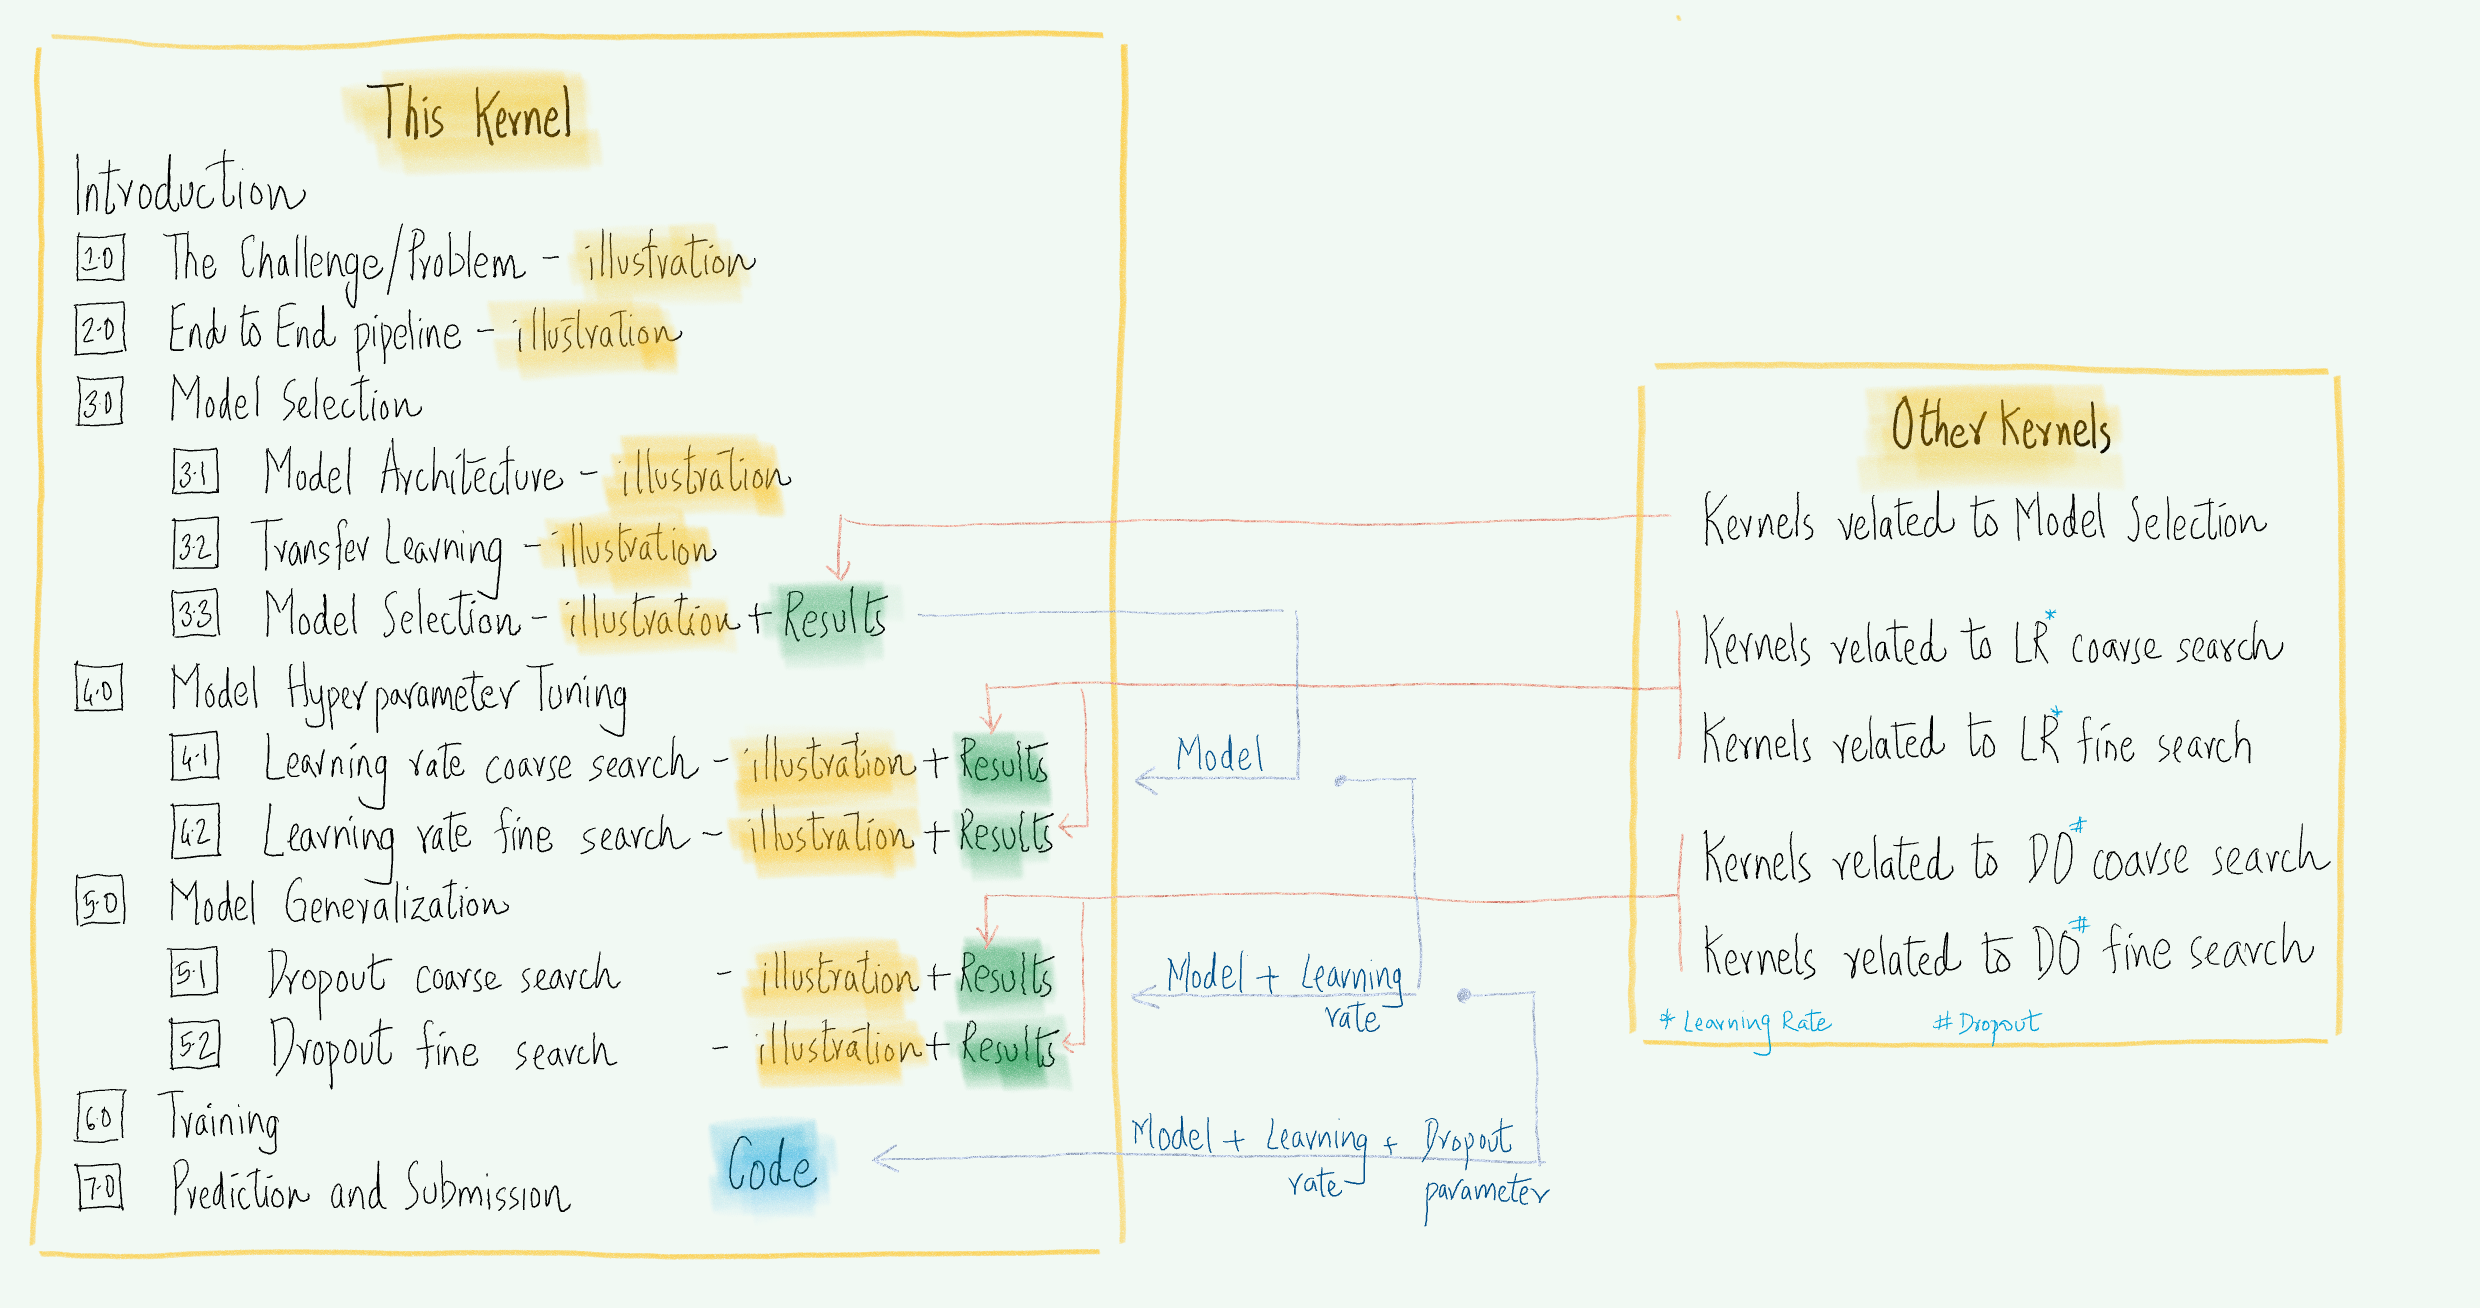 This Kernel
Introduction
1.0 The Challenge/Problem - illustration
2.0 End to End pipeline - illustration
3.0 Model Selection
3.1 Model Architecture - illustration
3.2 Transfer Learning - illustration
3.3 Model Selection - illustration + Results
4.0 Model Hyperparameter Tuning
4.1 Learning rate coarse search - illustration + Results
4.2 Learning rate fine search - illustration + Results
5.0 Model Generalization
5.1 Dropout coarse search - illustration + Results
5.2 Dropout fine search - illustration + Results
6.0 Training
7.0 Prediction and Submission
Code
Model
Model + Learning
rate
Model + Learning + Dropout
rate parameter
Other Kernels
Kernels related to Model Selection
Kernels related to LR* coarse search
Kernels related to LR* fine search
Kernels related to DO# coarse search
Kernels related to DO# fine search
* Learning Rate # Dropout